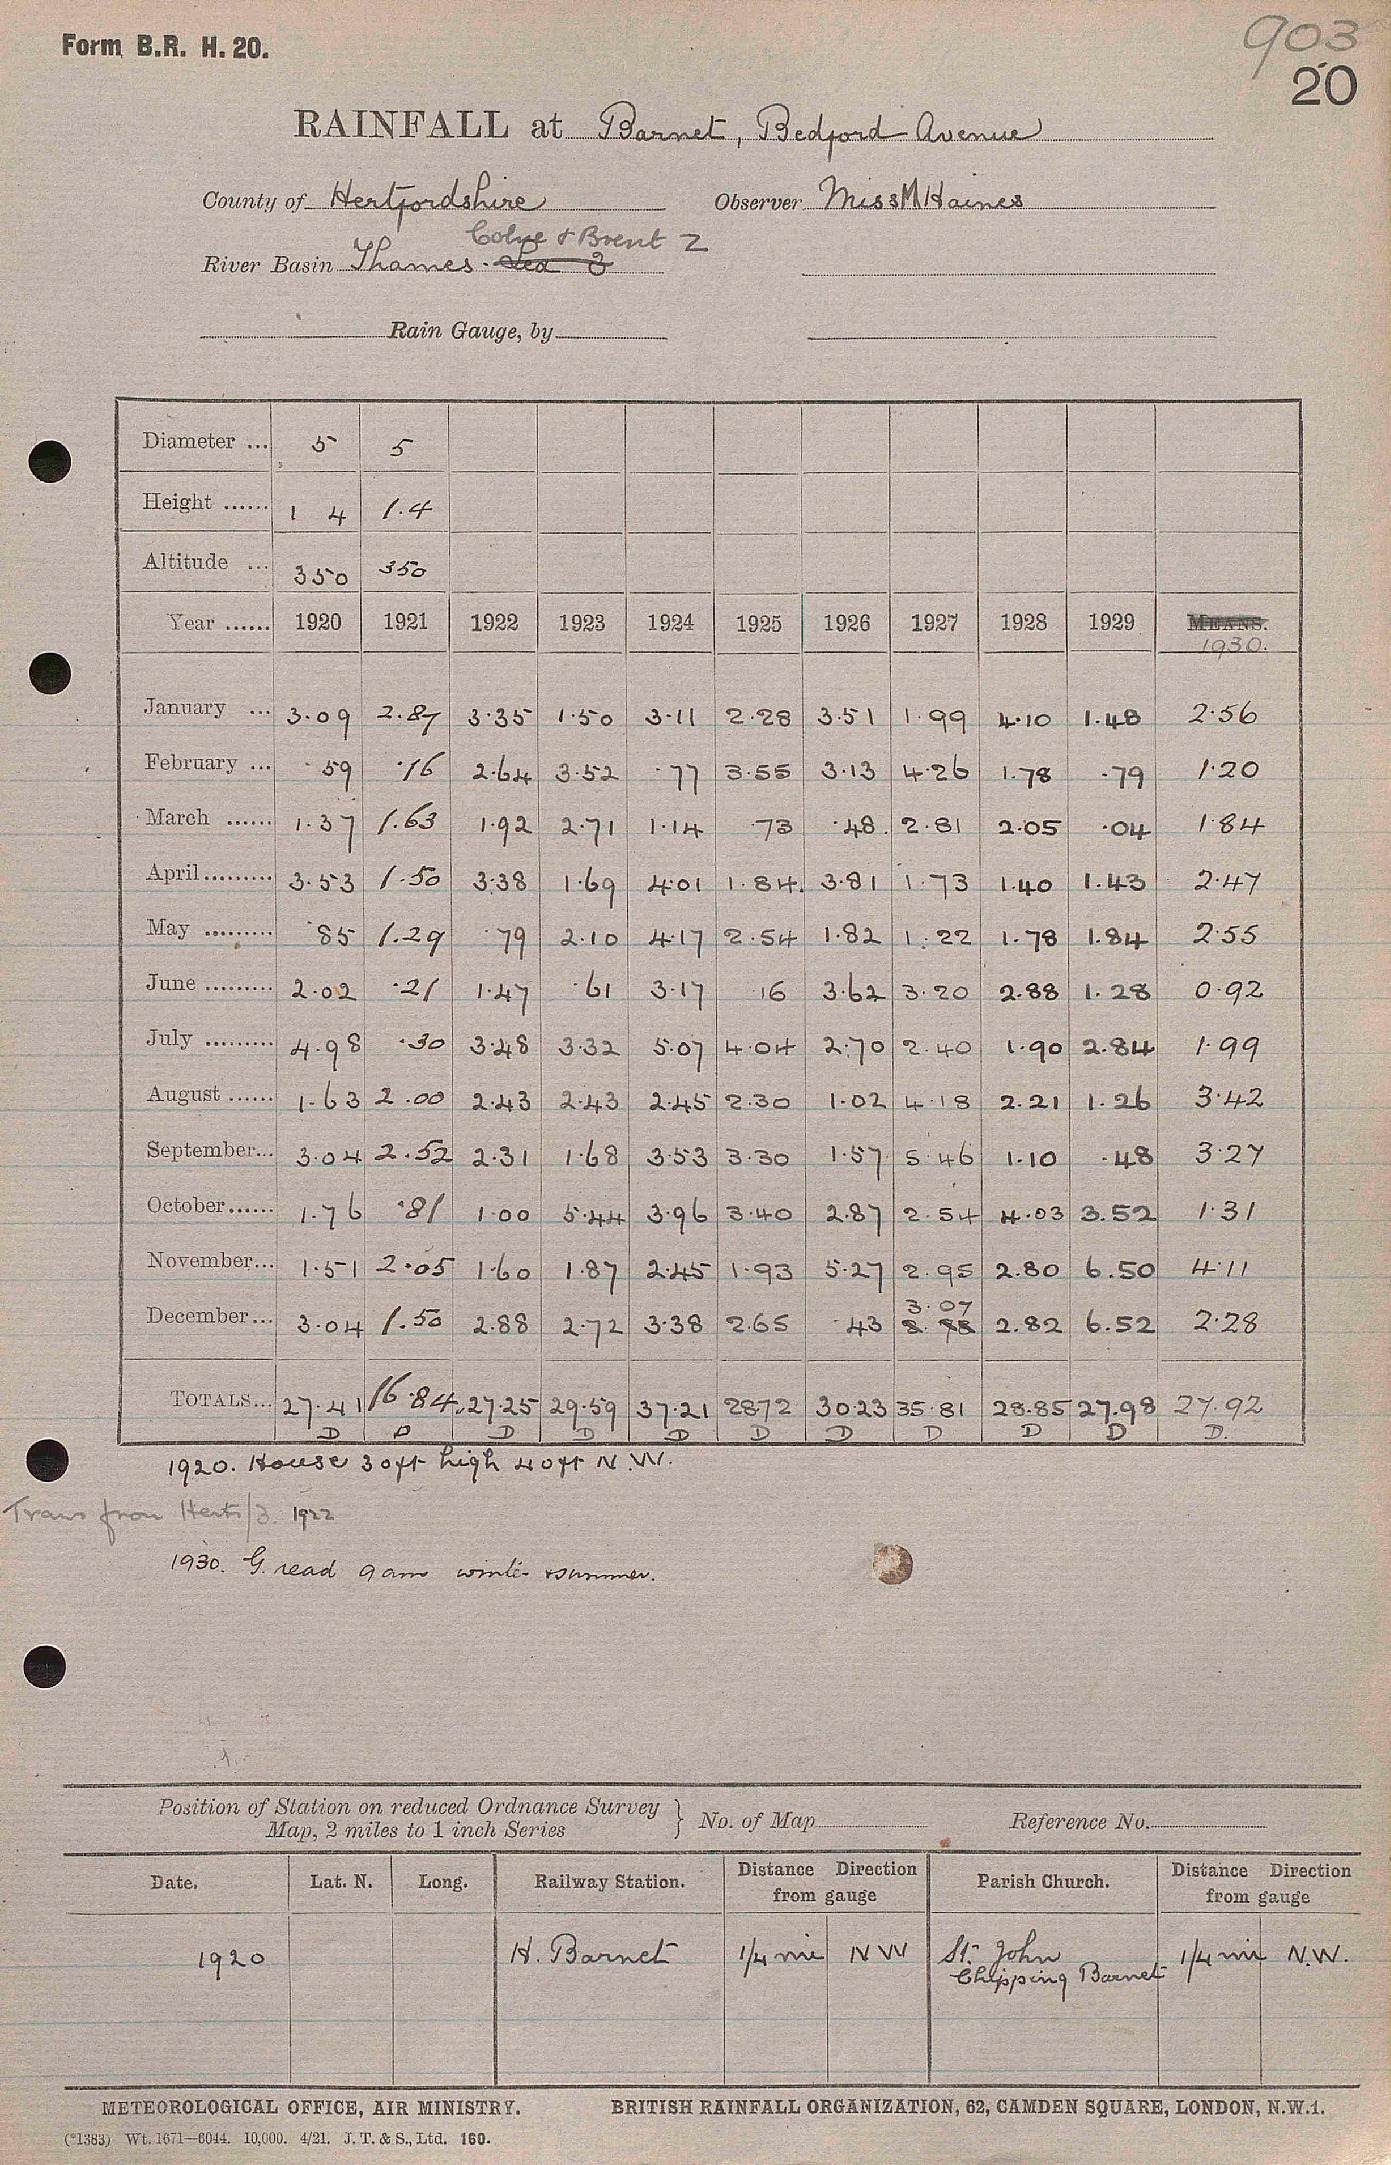 Form B.R. H. 20.
903
20
RAINFALL at Barnet, Bedford Avenue
County of Hertfordshire Observer Miss M Haines
Colne & Brent 2
River Basin Thames. Lea 3
Rain Gauge, by
Diameter ... 5 5
Height ...... 1 4 1.4
Altitude ... 350 350
Year ...... 1920 1921 1922 1923 1924 1925 1926 1927 1928 1929 MEANS.
1930.
January ... 3.09 2.87 3.35 1.50 3.11 2.28 3.51 1.99 4.10 1.48 2.56
February ... .59 .16 2.64 3.52 .77 3.55 3.13 4.26 1.78 .79 1.20
March ...... 1.37 1.63 1.92 2.71 1.14 .73 .48 2.81 2.05 .04 1.84
April ......... 3.53 1.50 3.38 1.69 4.01 1.84 3.81 1.73 1.40 1.43 2.47
May ......... .85 1.29 .79 2.10 4.17 2.54 1.82 1.22 1.78 1.84 2.55
June ......... 2.02 .21 1.47 .61 3.17 .16 3.62 3.20 2.88 1.28 0.92
July ......... 4.98 .30 3.48 3.32 5.07 4.04 2.70 2.40 1.90 2.84 1.99
August ...... 1.63 2.00 2.43 2.43 2.45 2.30 1.02 4.18 2.21 1.26 3.42
September... 3.04 2.52 2.31 1.68 3.53 3.30 1.57 5.46 1.10 .48 3.27
October...... 1.76 .81 1.00 5.44 3.96 3.40 2.87 2.54 4.03 3.52 1.31
November... 1.51 2.05 1.60 1.87 2.45 1.93 5.27 2.95 2.80 6.50 4.11
3.07
December... 3.04 1.50 2.88 2.72 3.38 2.65 .43 2.82 6.52 2.28
TOTALS... 27.41 16.84 27.25 29.59 37.21 28.72 30.23 35.81 28.85 27.98 27.92
D D D D D D D D D D D.
1920. House 30ft high 40ft N.W.
Trans from Herts/3. 1922
1930. G. read 9am winter & summer.
Position of Station on reduced Ordnance Survey
Map, 2 miles to 1 inch Series } No. of Map Reference No.
Date. Lat. N. Long. Railway Station. Distance Direction from gauge Parish Church. Distance Direction from gauge
1920 H. Barnet 1/4 mi NW St. John 1/4 mi N.W.
Chipping Barnet
METEOROLOGICAL OFFICE, AIR MINISTRY. BRITISH RAINFALL ORGANIZATION, 62, CAMDEN SQUARE, LONDON, N.W.1.
(*1383) Wt. 1671—6044. 10,000. 4/21. J. T. & S., Ltd. 160.